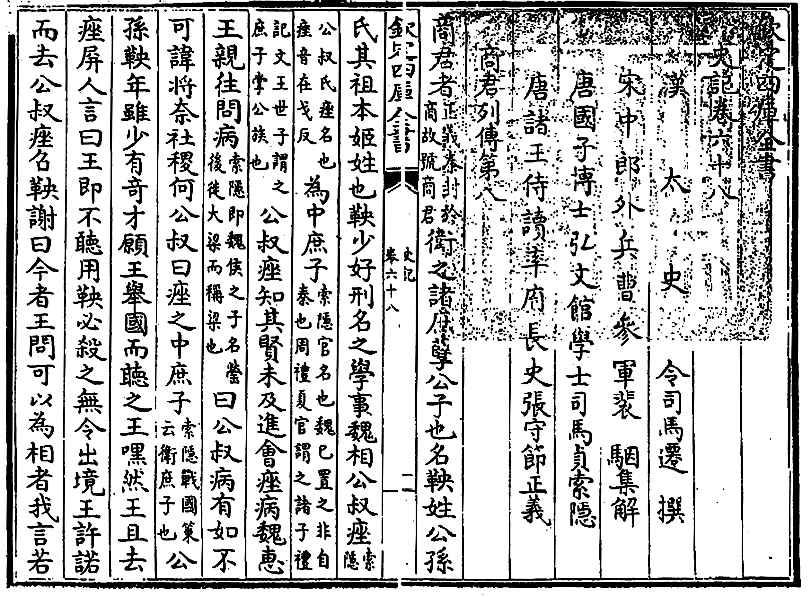 欽定四庫全書
史記卷六十八
漢太史令司馬遷撰
宋中郎外兵曹參軍裴駰集解
唐國子博士弘文館學士司馬貞索隱
唐諸王侍讀率府長史張守節正義
商君列傳第八
商君者正義秦封於商故號商君衛之諸庶孽公子也名鞅姓公孫
氏其祖本姬姓也鞅少好刑名之學事魏相公叔座索隱
公叔氏座名也座音在戈反為中庶子索隱官名也魏已置之非自秦也周禮夏官謂之諸子禮
記文王世子謂之庶子掌公族也公叔座知其賢未及進會座病魏惠
王親往問病索隱即魏侯之子名罃後徙大梁而稱梁也曰公叔病有如不
可諱將奈社稷何公叔曰座之中庶子索隱戰國策云衛庶子也公
孫鞅年雖少有奇才願王舉國而聽之王嘿然王且去
座屏人言曰王即不聽用鞅必殺之無令出境王許諾
而去公叔座召鞅謝曰今者王問可以為相者我言若
欽定四庫全書
史記
卷六十八
二